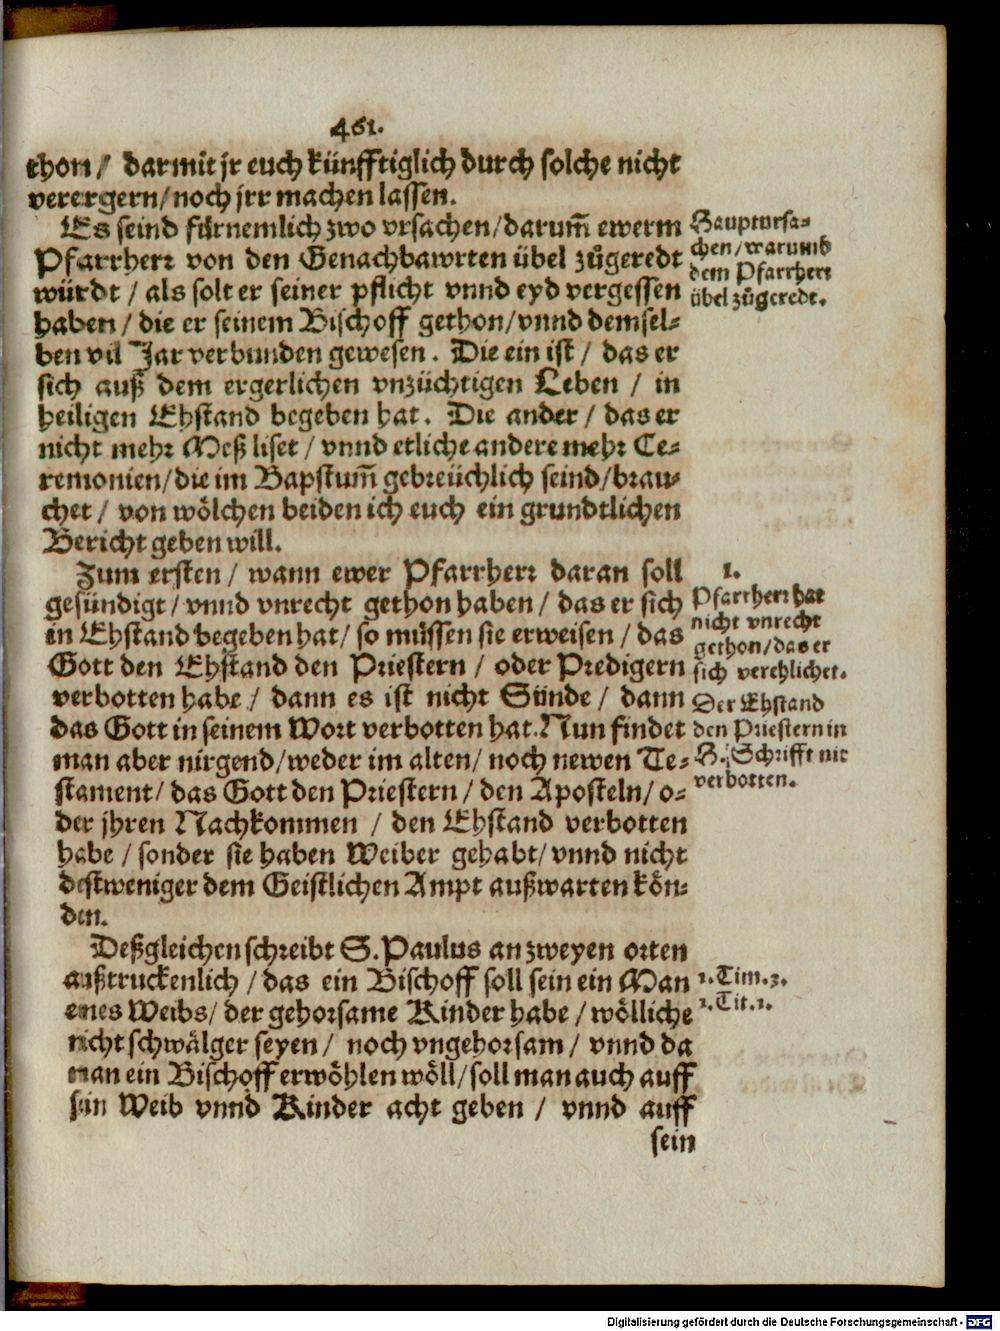 461.
thon / darmit jr euch künfftiglich durch solche nicht
verergern / noch jrr machen lassen.
Es seind fürnemlich zwo vrsachen / darum̃ ewerm
Pfarrherr von den Genachbawrten übel zůgeredt
würdt / als solt er seiner pflicht vnnd eyd vergessen
haben / die er seinem Bischoff gethon / vnnd demsel-
ben vil Jar verbunden gewesen. Die ein ist / das er
sich auß dem ergerlichen vnzüchtigen Leben / in
heiligen Ehstand begeben hat. Die ander / das er
nicht mehr Meß liset / vnnd etliche andere mehr Ce-
remonien / die im Bapstum̃ gebreüchlich seind / brau-
chet / von wölchen beiden ich euch ein grundtlichen
Bericht geben will.
Zum ersten / wann ewer Pfarrherr daran soll
gesündigt / vnnd vnrecht gethon haben / das er sich
in Ehstand begeben hat / so müssen sie erweisen / das
Gott den Ehstand den Priestern / oder Predigern
verbotten habe / dann es ist nicht Sünde / dann
das Gott in seinem Wort verbotten hat. Nun findet
man aber nirgend / weder im alten / noch newen Te-
stament / das Gott den Priestern / den Aposteln / o-
der jhren Nachkommen / den Ehstand verbotten
habe / sonder sie haben Weiber gehabt / vnnd nicht
destweniger dem Geistlichen Ampt außwarten kön-
den.
Deßgleichen schreibt S. Paulus an zweyen orten
außtruckenlich / das ein Bischoff soll sein ein Man
eines Weibs / der gehorsame Kinder habe / wölliche
nicht schwälger seyen / noch vngehorsam / vnnd da
man ein Bischoff erwöhlen wöll / soll man auch auff
sein Weib vnnd Kinder acht geben / vnnd auff
sein
Hauptursa-
chen / warumb
dem Pfarrherr
übel zůgeredt.
1.
Pfarrherr hat
nicht vnrecht
gethon / das er
sich verehlichet.
Der Ehstand
den Priestern in
H. Schrifft nit
verbotten.
1. Tim. 3.
1. Tit. 1.
Digitalisierung gefördert durch die Deutsche Forschungsgemeinschaft - DFG